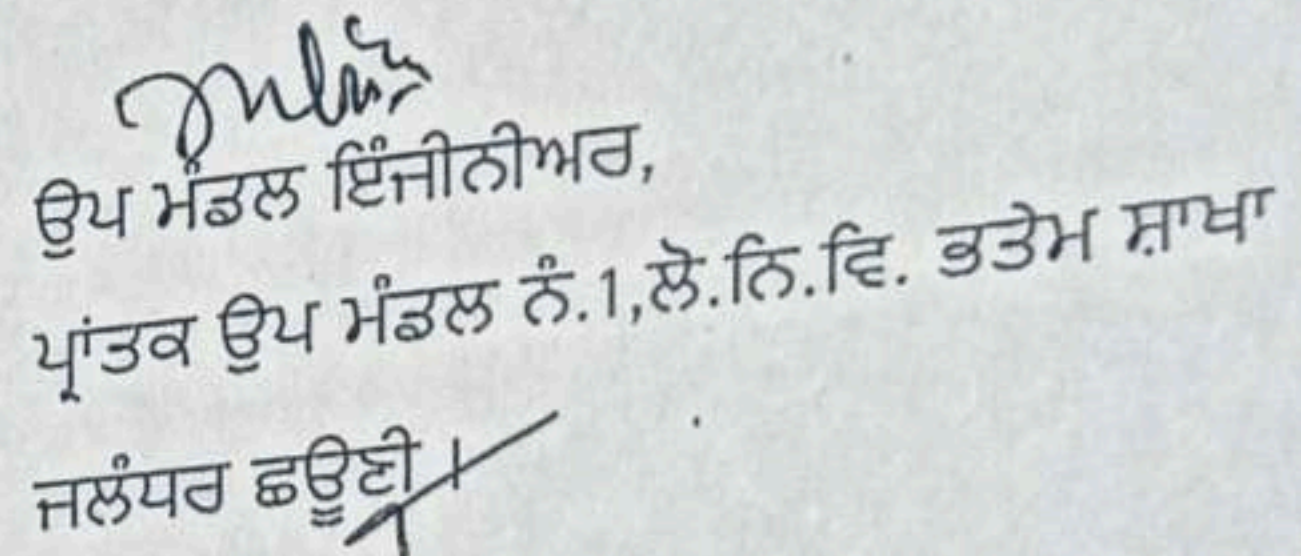 ਉਪ ਮੰਡਲ ਇੰਜੀਨੀਅਰ,
ਪ੍ਰਾਂਤਕ ਉਪ ਮੰਡਲ ਨੰ.1,ਲੋ.ਨਿ.ਵਿ. ਭਤੇਮ ਸ਼ਾਖਾ
ਜਲੰਧਰ ਛਊਣੀ।